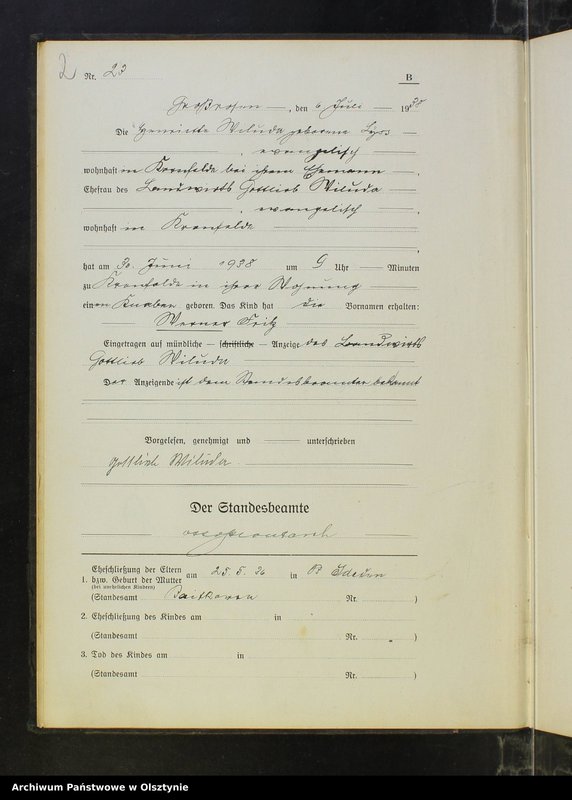 2
Nr. 23
B
Großrosen —, den 6. Juli — 1938
Die Henriette Wiluda geborene
, evangelisch
wohnhaft in Kronfelde bei ihrem Ehemann —,
Ehefrau des Landwirts Gottlieb Wiluda —
, evangelisch —,
wohnhaft in Kronfelde
hat am 30. Juni 1938 um 9 Uhr — Minuten
zu Kronfelde in ihrer Wohnung
einen Knaben geboren. Das Kind hat die Vornamen erhalten:
Werner Fritz
Eingetragen auf mündliche — schriftliche — Anzeige des Landwirts
Gottlieb Wiluda
Der Anzeigende ist dem Standesbeamten bekannt
Vorgelesen, genehmigt und — unterschrieben
Gottlieb Wiluda
Der Standesbeamte
1. Eheschließung der Eltern
bzw. Geburt der Mutter am 25. 5. 36 in
(bei unehelichen Kindern)
(Standesamt Nr. )
2. Eheschließung des Kindes am in
(Standesamt Nr. )
3. Tod des Kindes am in
(Standesamt Nr. )
Archiwum Państwowe w Olsztynie